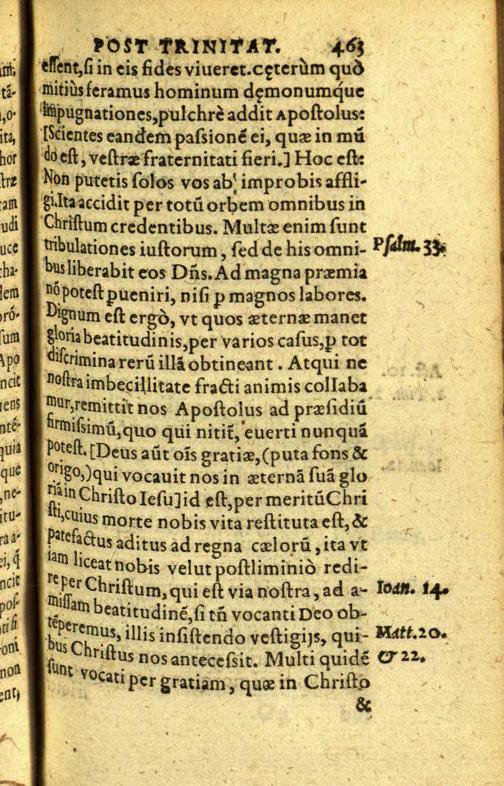 POST TRINITAT. 463
essent, si in eis fides viueret. cęterùm quò
mitiùs feramus hominum dęmonumq́ue
impugnationes, pulchrè addit Apostolus:
[Scientes eandem passionẽ ei, quæ in mũ
do est, vestræ fraternitati fieri.] Hoc est:
Non putetis solos vos ab improbis affli-
gi. Ita accidit per totũ orbem omnibus in
Christum credentibus. Multæ enim sunt
tribulationes iustorum, sed de his omni-
Psalm. 33.
bus liberabit eos Dñs. Ad magna præmia
nõ potest pueniri, nisi p magnos labores.
Dignum est ergò, vt quos æternæ manet
gloria beatitudinis, per varios casus, p tot
discrimina rerũ illã obtineant. Atqui ne
nostra imbecillitate fracti animis collaba
mur, remittit nos Apostolus ad præsidiũ
firmissimũ, quo qui nitit̃, euerti nunquã
potest. [Deus aũt oĩs gratiæ, (puta fons &
origo,) qui vocauit nos in æternã suã glo
riã in Christo Iesu] id est, per meritũ Chri
sti, cuius morte nobis vita restituta est, &
patefactus aditus ad regna cælorũ, ita vt
iam liceat nobis velut postliminiò redi-
re per Christum, qui est via nostra, ad a-
Ioan. 14.
missam beatitudinẽ, si tñ vocanti Deo ob-
tẽperemus, illis insistendo vestigijs, qui-
Matt. 20.
bus Christus nos antecessit. Multi quidẽ
& 22.
sunt vocati per gratiam, quæ in Christo
&